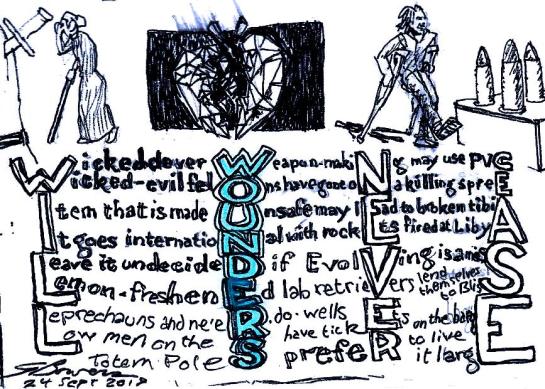 Wickeddover Weapon-making may use PVC
Wicked-evil felons have gone on a killing spree
Item that is made Unsafe may lEad to broken tibiA
It goes internatioNal with rockEts fired at LibyA
Leave it undecideD if EvolVing is amisS
Lemon-freshenEd lab retrieVers lend themselves to BlisS
Leprechauns and ne'eR.do.wells have tickEts on the bargE
Low men on the Totem PoleS prefeR to live it largE
24 Sept 2018